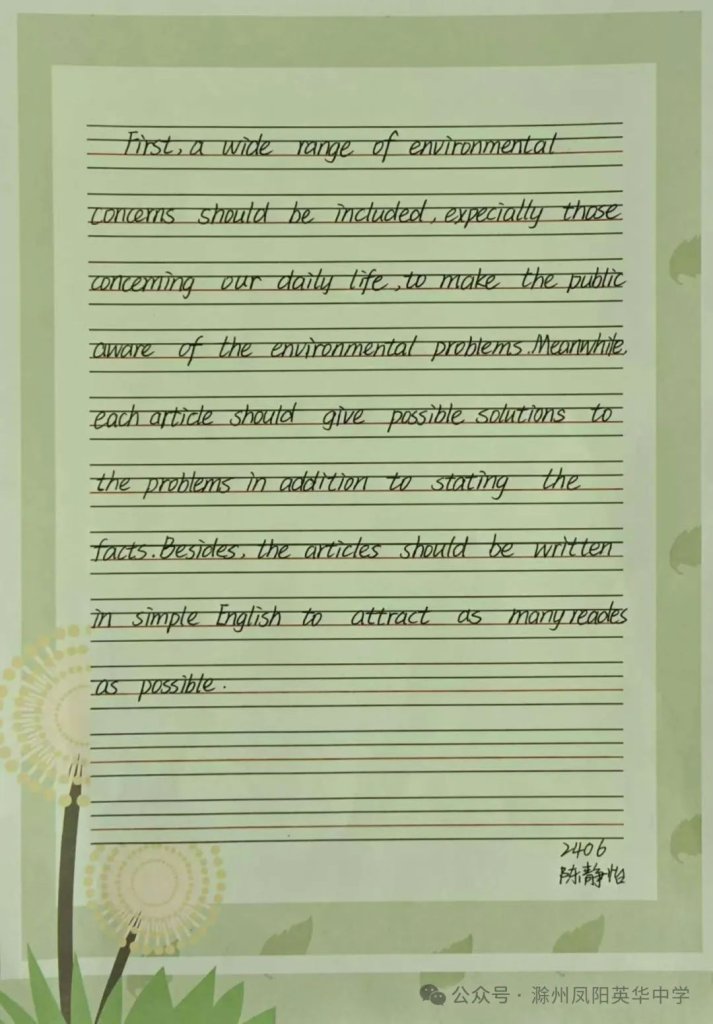 First, a wide range of environmental
concerns should be included, expecially those
concerning our daily life, to make the public
aware of the environmental problems. Meanwhile,
each article should give possible solutions to
the problems in addition to stating the
facts. Besides, the articles should be written
in simple English to attract as many reades
as possible.
2406
陈静怡
公众号 · 滁州凤阳英华中学